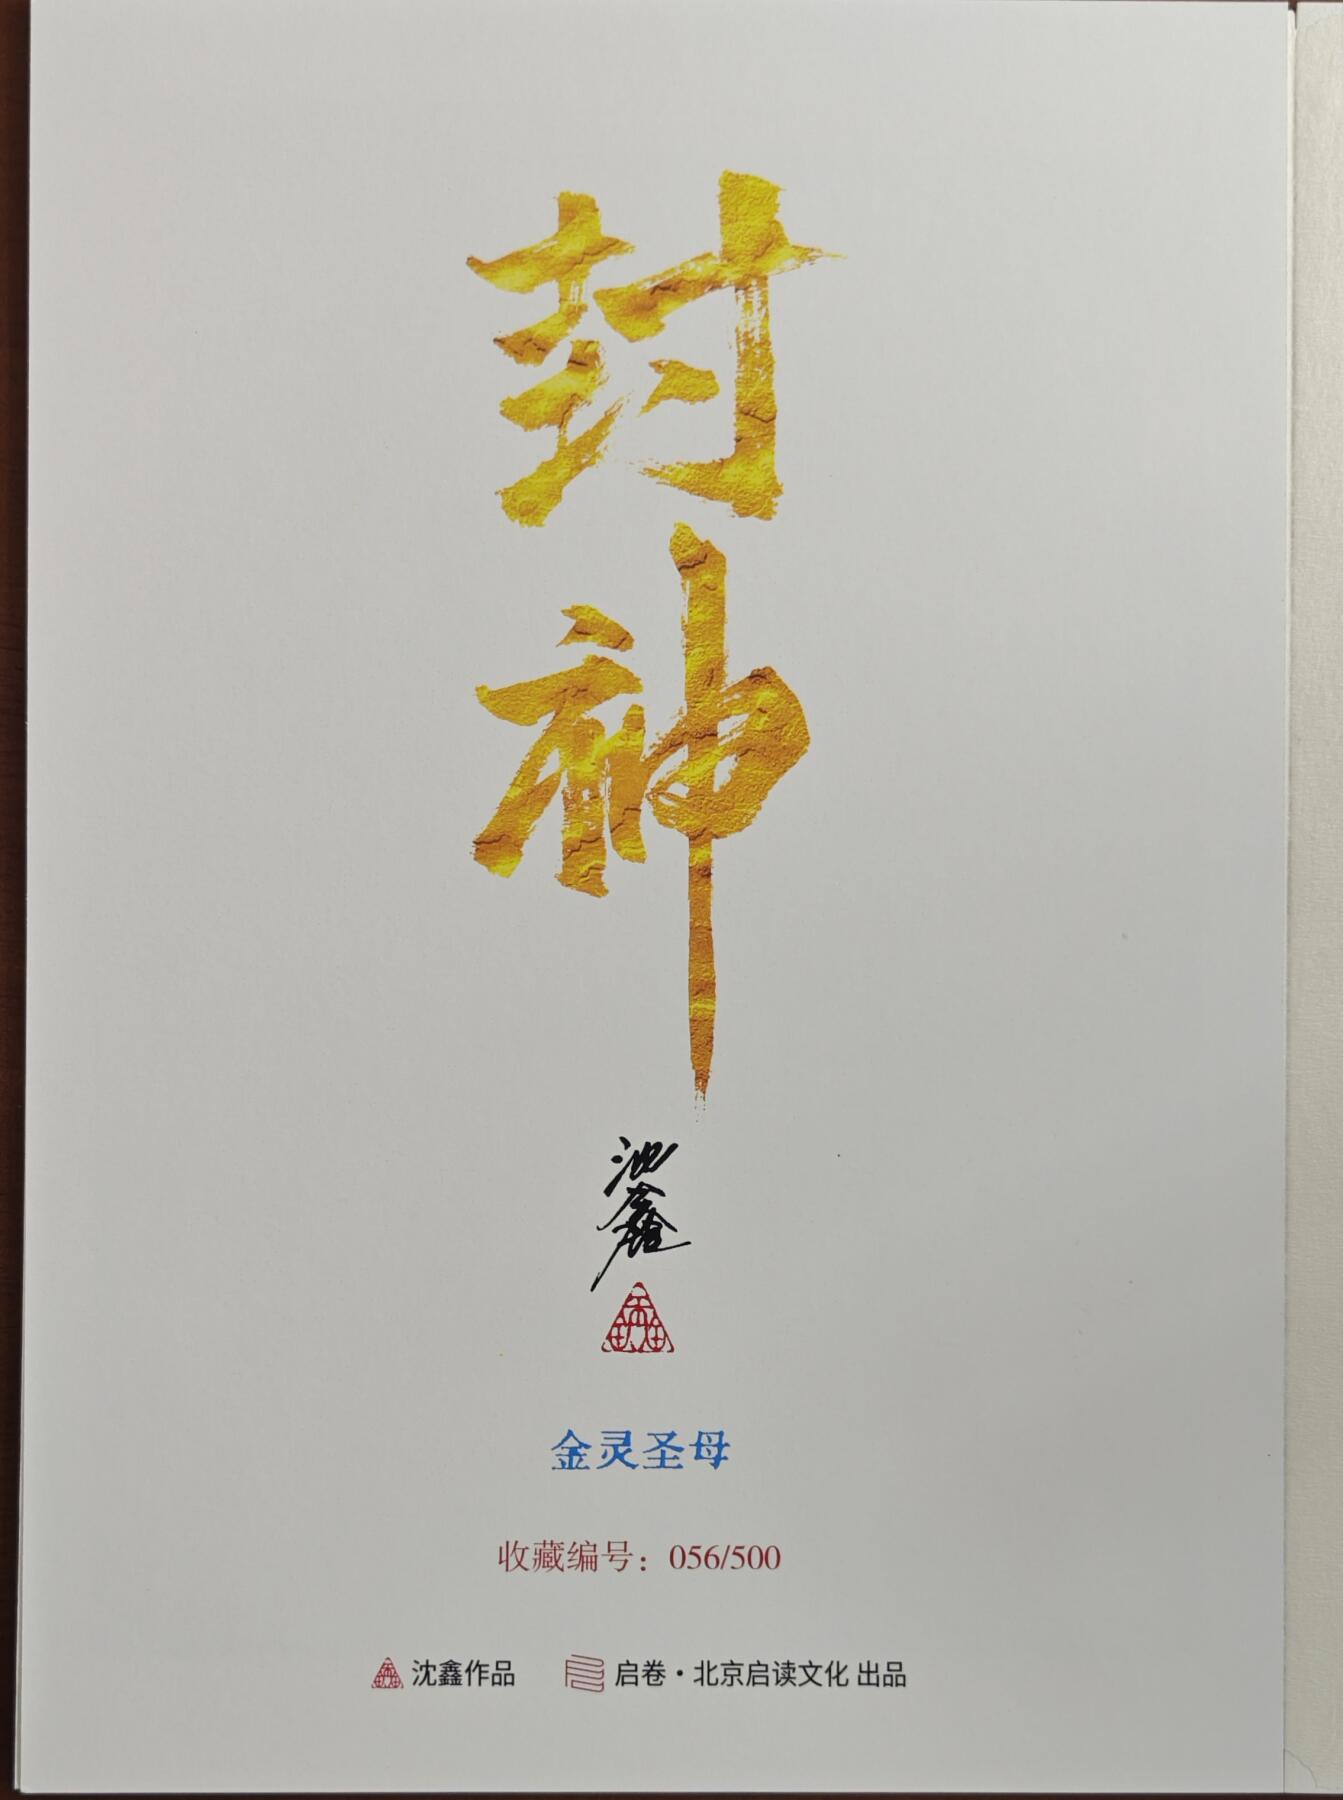 封
神
沈鑫
金灵圣母
收藏编号：056/500
沈鑫作品 启卷·北京启读文化 出品